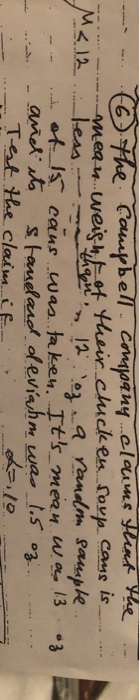 (6) The Campbell company claims that the
mean weight of their chicken soup cans is
μ<12 less than 12 oz a random sample
of 15 cans was taken. It's mean was 13 oz
and its standard deviation was 1.5 oz.
Test the claim if α=.10